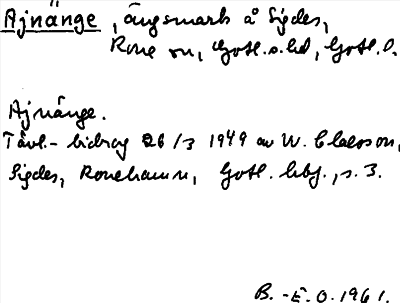 Ajnänge, ängsmark å Sigdes,
Rone sn, Gotl. s. hd, Gotl. l.
Ajnänge.
Tävl.-bidrag 26/3 1949 av W. Claesson,
Sigdes, Ronehamn, Gotl. hbf., s. 3.
B.-E. O. 1961.